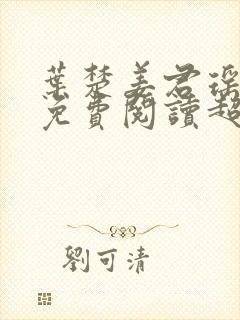 葉楚姜君瑤
免費閱讀超
劉可清